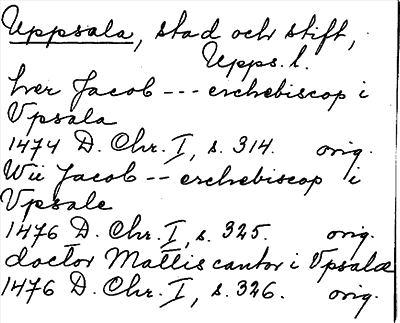 Uppsala, stad och stift,
Upps. l.
her Jacob --- erchebiscop i
Vpsala
1474 D. Chr. I, s. 314. orig.
Wii Jacob -- erchebiscop i
Vpsale
1476 D. Chr. I, s. 325. orig.
doctor Mattis cantor i Vpsalæ
1476 D. Chr. I, s. 326. orig.